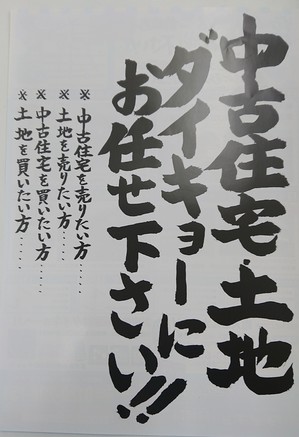 中古住宅・土地
ダイキョーに
お任せ下さい!!
※中古住宅を売りたい方‥‥
※土地を売りたい方‥‥
※中古住宅を買いたい方‥‥
※土地を買いたい方‥‥